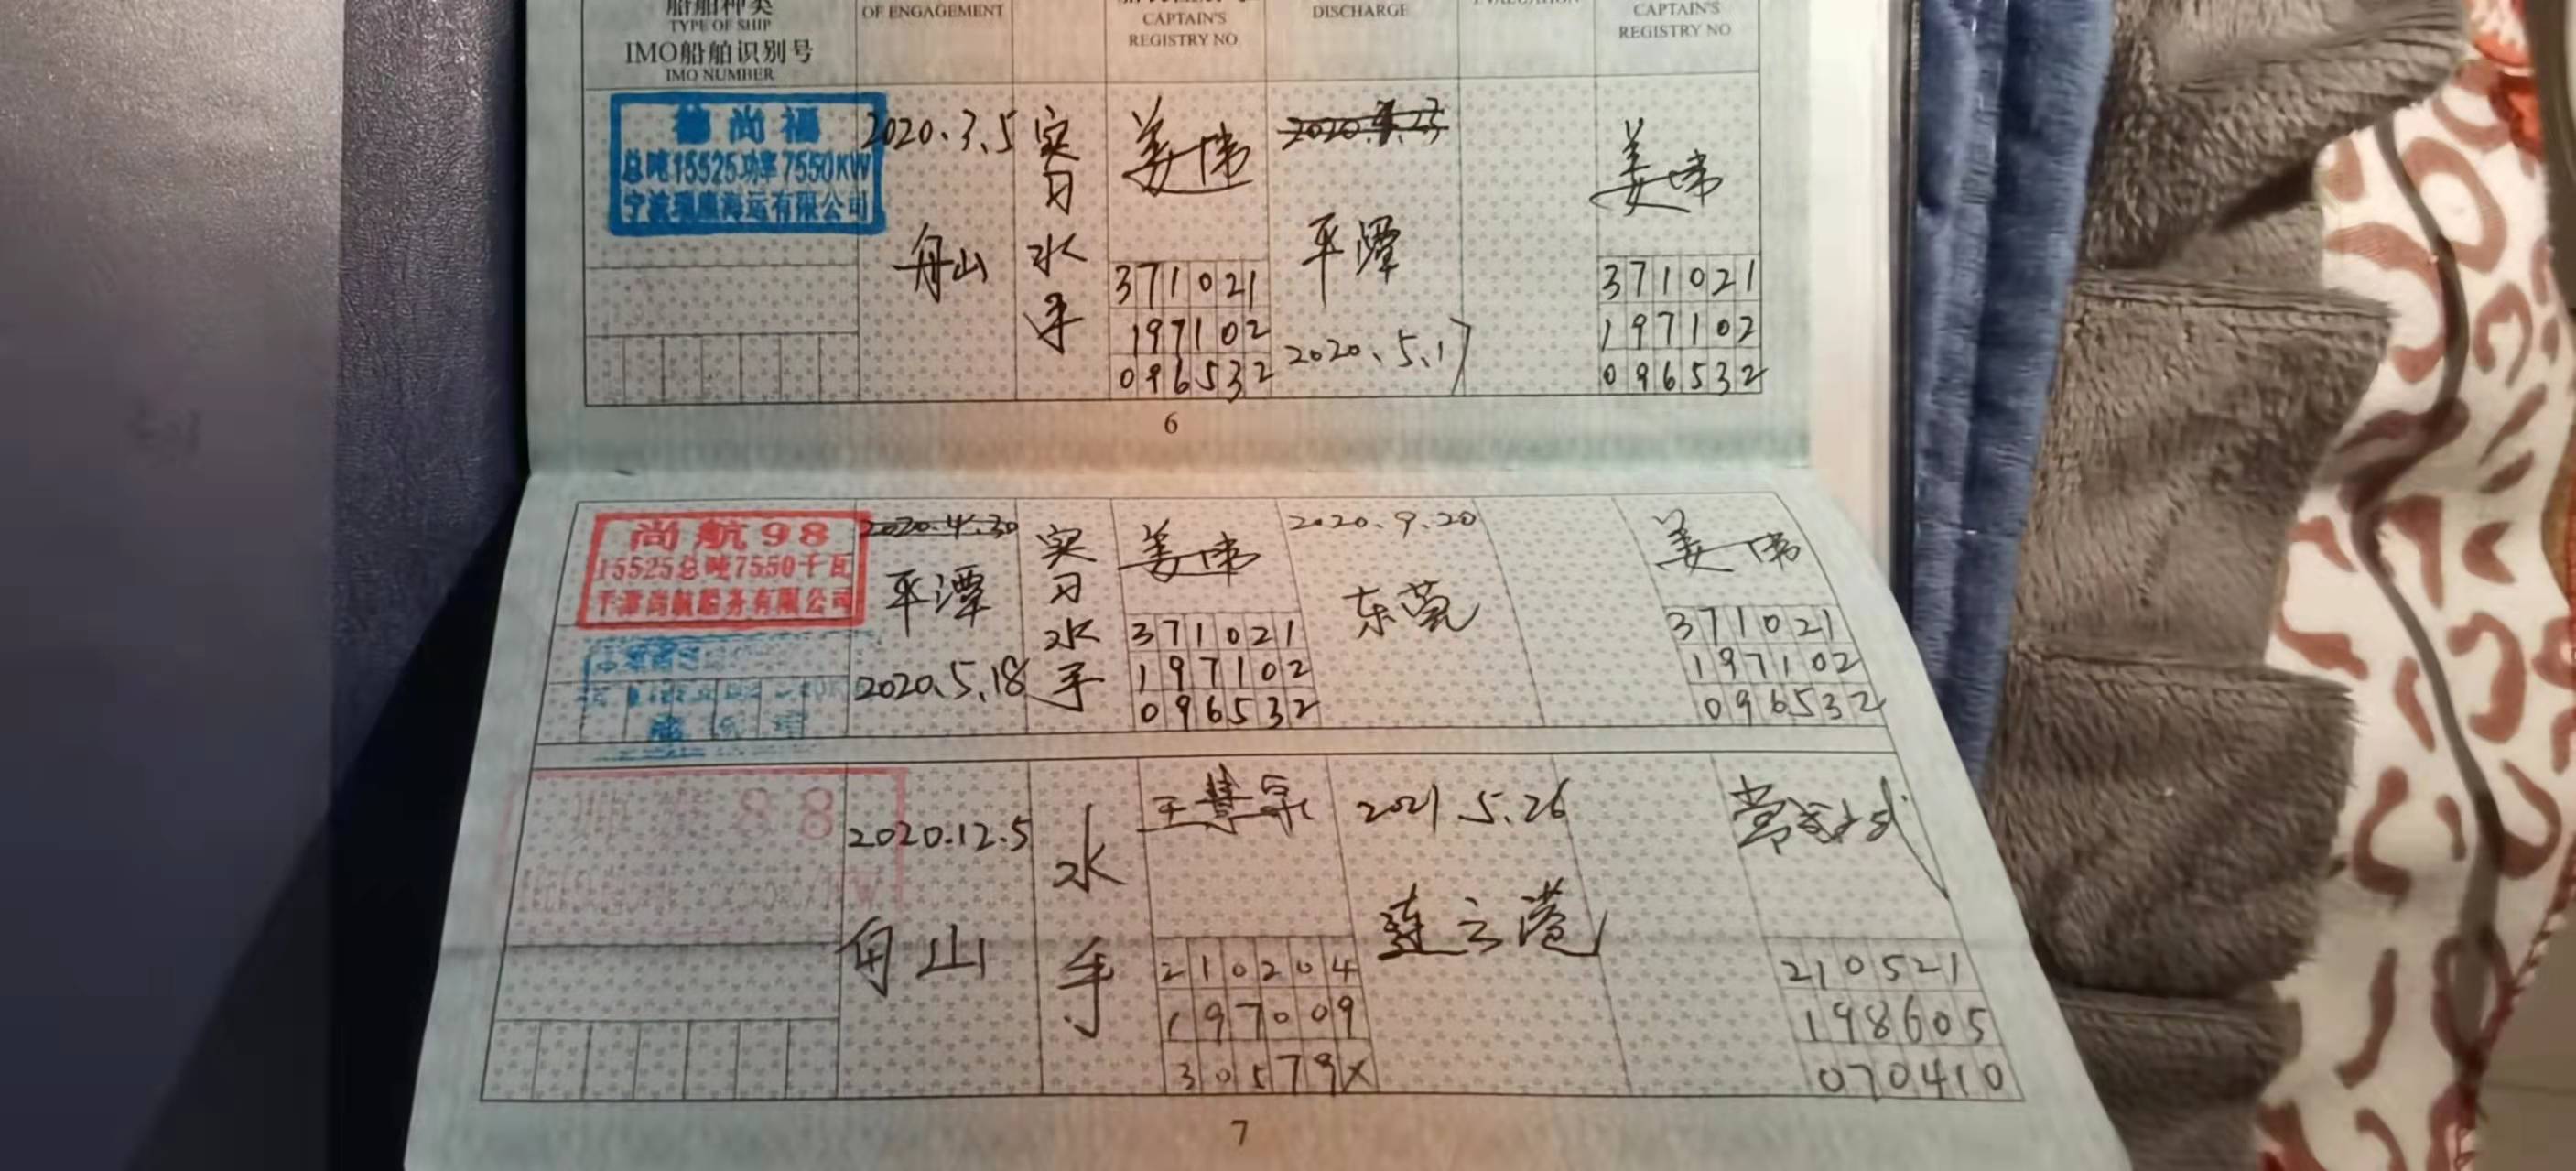 船舶种类
TYPE OF SHIP
IMO船舶识别号
IMO NUMBER
OF ENGAGEMENT
CAPTAIN'S
REGISTRY NO
DISCHARGE
CAPTAIN'S
REGISTRY NO
尚福
总吨15525功率7550KW
海运有限公司
2020.3.5
舟山
实习水手
姜伟
371021
197102
096532
平潭
2020.5.17
姜伟
371021
197102
096532
6
尚航98
15525总吨7550千瓦
尚航船务有限公司
2020.4.30
平潭
2020.5.18
实习水手
姜伟
371021
197102
096532
2020.9.20
东莞
姜伟
371021
197102
096532
88
2020.12.5
舟山
水手
210204
197009
30579X
2021.5.26
连云港
210521
198605
070410
7